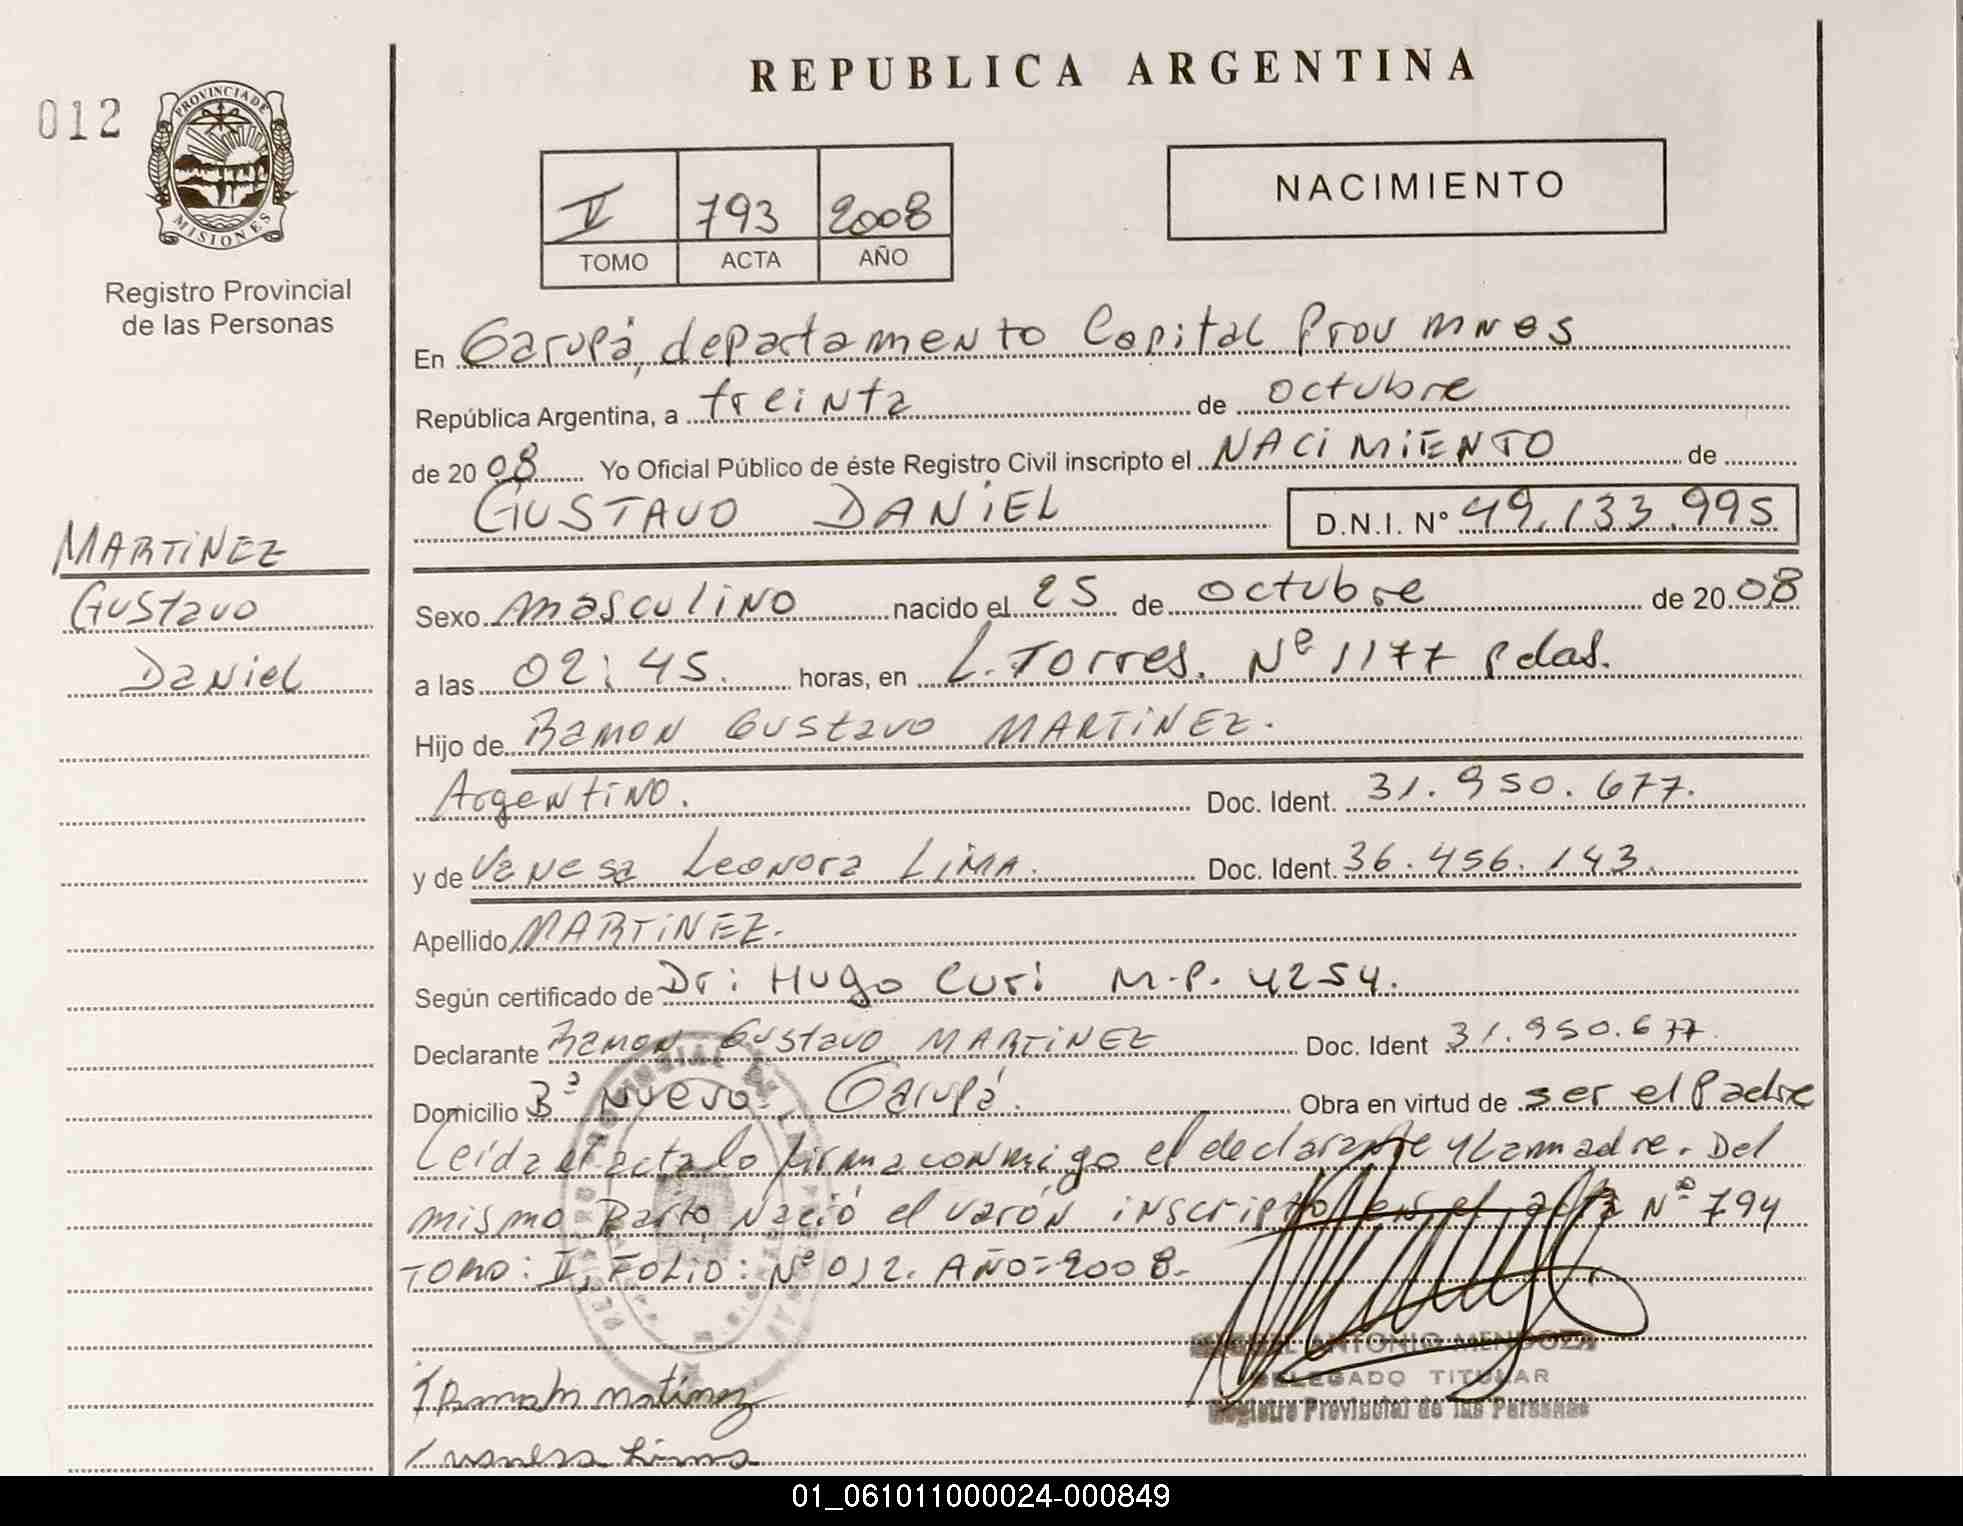 REPUBLICA ARGENTINA
012
PROVINCIA DE
MISIONES
Registro Provincial
de las Personas
II 793 2008
TOMO ACTA AÑO
NACIMIENTO
En Garupá, departamento Capital Prov Mnes
República Argentina, a treinta de octubre
de 2008 Yo Oficial Público de éste Registro Civil inscripto el NACIMIENTO de
GUSTAVO DANIEL D.N.I. N° 49.133.995
MARTINEZ
Gustavo
Daniel
Sexo masculino nacido el 25 de octubre de 2008
a las 02:45. horas, en L. Torres. Nº 1177 Pdas.
Hijo de Ramon Gustavo MARTINEZ.
Argentino. Doc. Ident. 31.950.677.
y de Vanesa Leonora LIMA. Doc. Ident. 36.456.143.
Apellido MARTINEZ.
Según certificado de Dr: Hugo Curi M.P. 4254.
Declarante Ramon Gustavo MARTINEZ Doc. Ident 31.950.677.
Domicilio Bº Nuevo. Garupá. Obra en virtud de ser el Padre
Leída el acta lo firma conmigo el declarante y la madre. Del
mismo Parto Nació el varón inscripto en el acta Nº 794
TOMO: II, FOLIO: Nº 012. AÑO=2008-
ANTONIO MENDOZA
DELEGADO TITULAR
Registro Provincial de las Personas
Martinez
Vanesa Lima
01_061011000024-000849